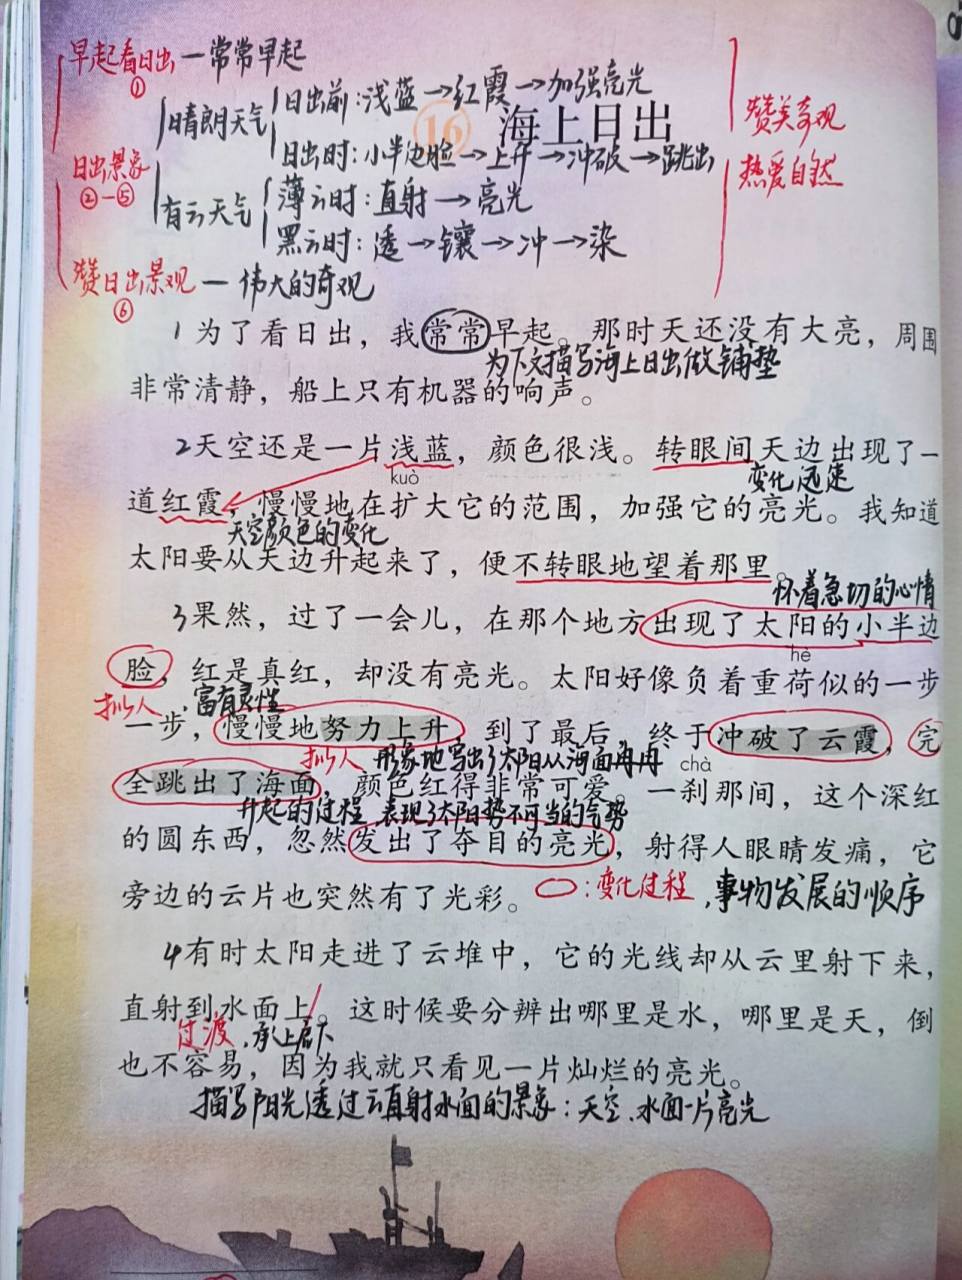 早起看日出一常常早起
①
晴朗天气
日出前：浅蓝→红霞→加强亮光
16 海上日出
日出时：小半边脸→上升→冲破→跳出
日出景象
②-⑤
有云天气
薄云时：直射→亮光
黑云时：透→镶→冲→染
赞日出景观一伟大的奇观
⑥
赞美奇观
热爱自然
1为了看日出，我常常早起。那时天还没有大亮，周围
为下文描写海上日出做铺垫
非常清静，船上只有机器的响声。
2天空还是一片浅蓝，颜色很浅。转眼间天边出现了一
kuò
变化迅速
道红霞，慢慢地在扩大它的范围，加强它的亮光。我知道
天空颜色的变化
太阳要从天边升起来了，便不转眼地望着那里。
怀着急切的心情
3果然，过了一会儿，在那个地方出现了太阳的小半边
hè
脸，红是真红，却没有亮光。太阳好像负着重荷似的一步
拟人，富有灵性
一步，慢慢地努力上升，到了最后，终于冲破了云霞，完
拟人 形象地写出了太阳从海面冉冉
chà
全跳出了海面，颜色红得非常可爱。一刹那间，这个深红
升起的过程，表现了太阳势不可当的气势
的圆东西，忽然发出了夺目的亮光，射得人眼睛发痛，它
旁边的云片也突然有了光彩。
：变化过程，事物发展的顺序
4有时太阳走进了云堆中，它的光线却从云里射下来，
直射到水面上。这时候要分辨出哪里是水，哪里是天，倒
过渡，承上启下
也不容易，因为我就只看见一片灿烂的亮光。
描写阳光透过云直射水面的景象：天空、水面一片亮光